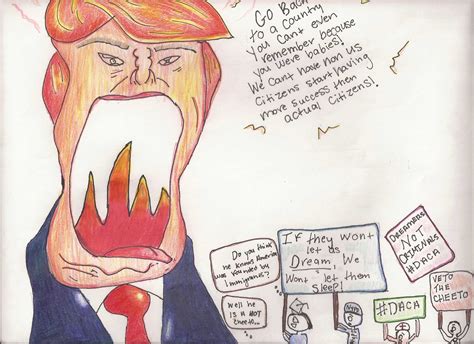 Go Back
to a country
you cant even
remember because
you were babies!
We cant have non us
citizens start having
more success then
actual citizens!
Do you think
he knows America
was founded by
immigrants?
Well he
is a HOT
cheeto...
If they wont
let us
Dream, We
Wont let them
Sleep!
DREAMERS
NOT
CRIMINALS
#DACA
#DACA
VETO
THE
CHEETO